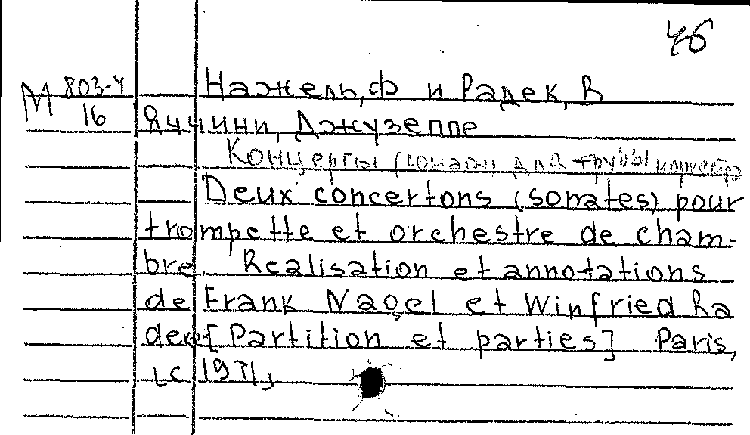 46
М 803-4 Нажель, Ф и Радек, В
16 Яччини, Джузеппе
Концерты (сонаты) для трубы
Deux concertons (sonates) pour
trompette et orchestre de cham-
bre. Realisation et annotations
de Frank Nagel et Winfried Ra
dec [Partition et parties] Paris,